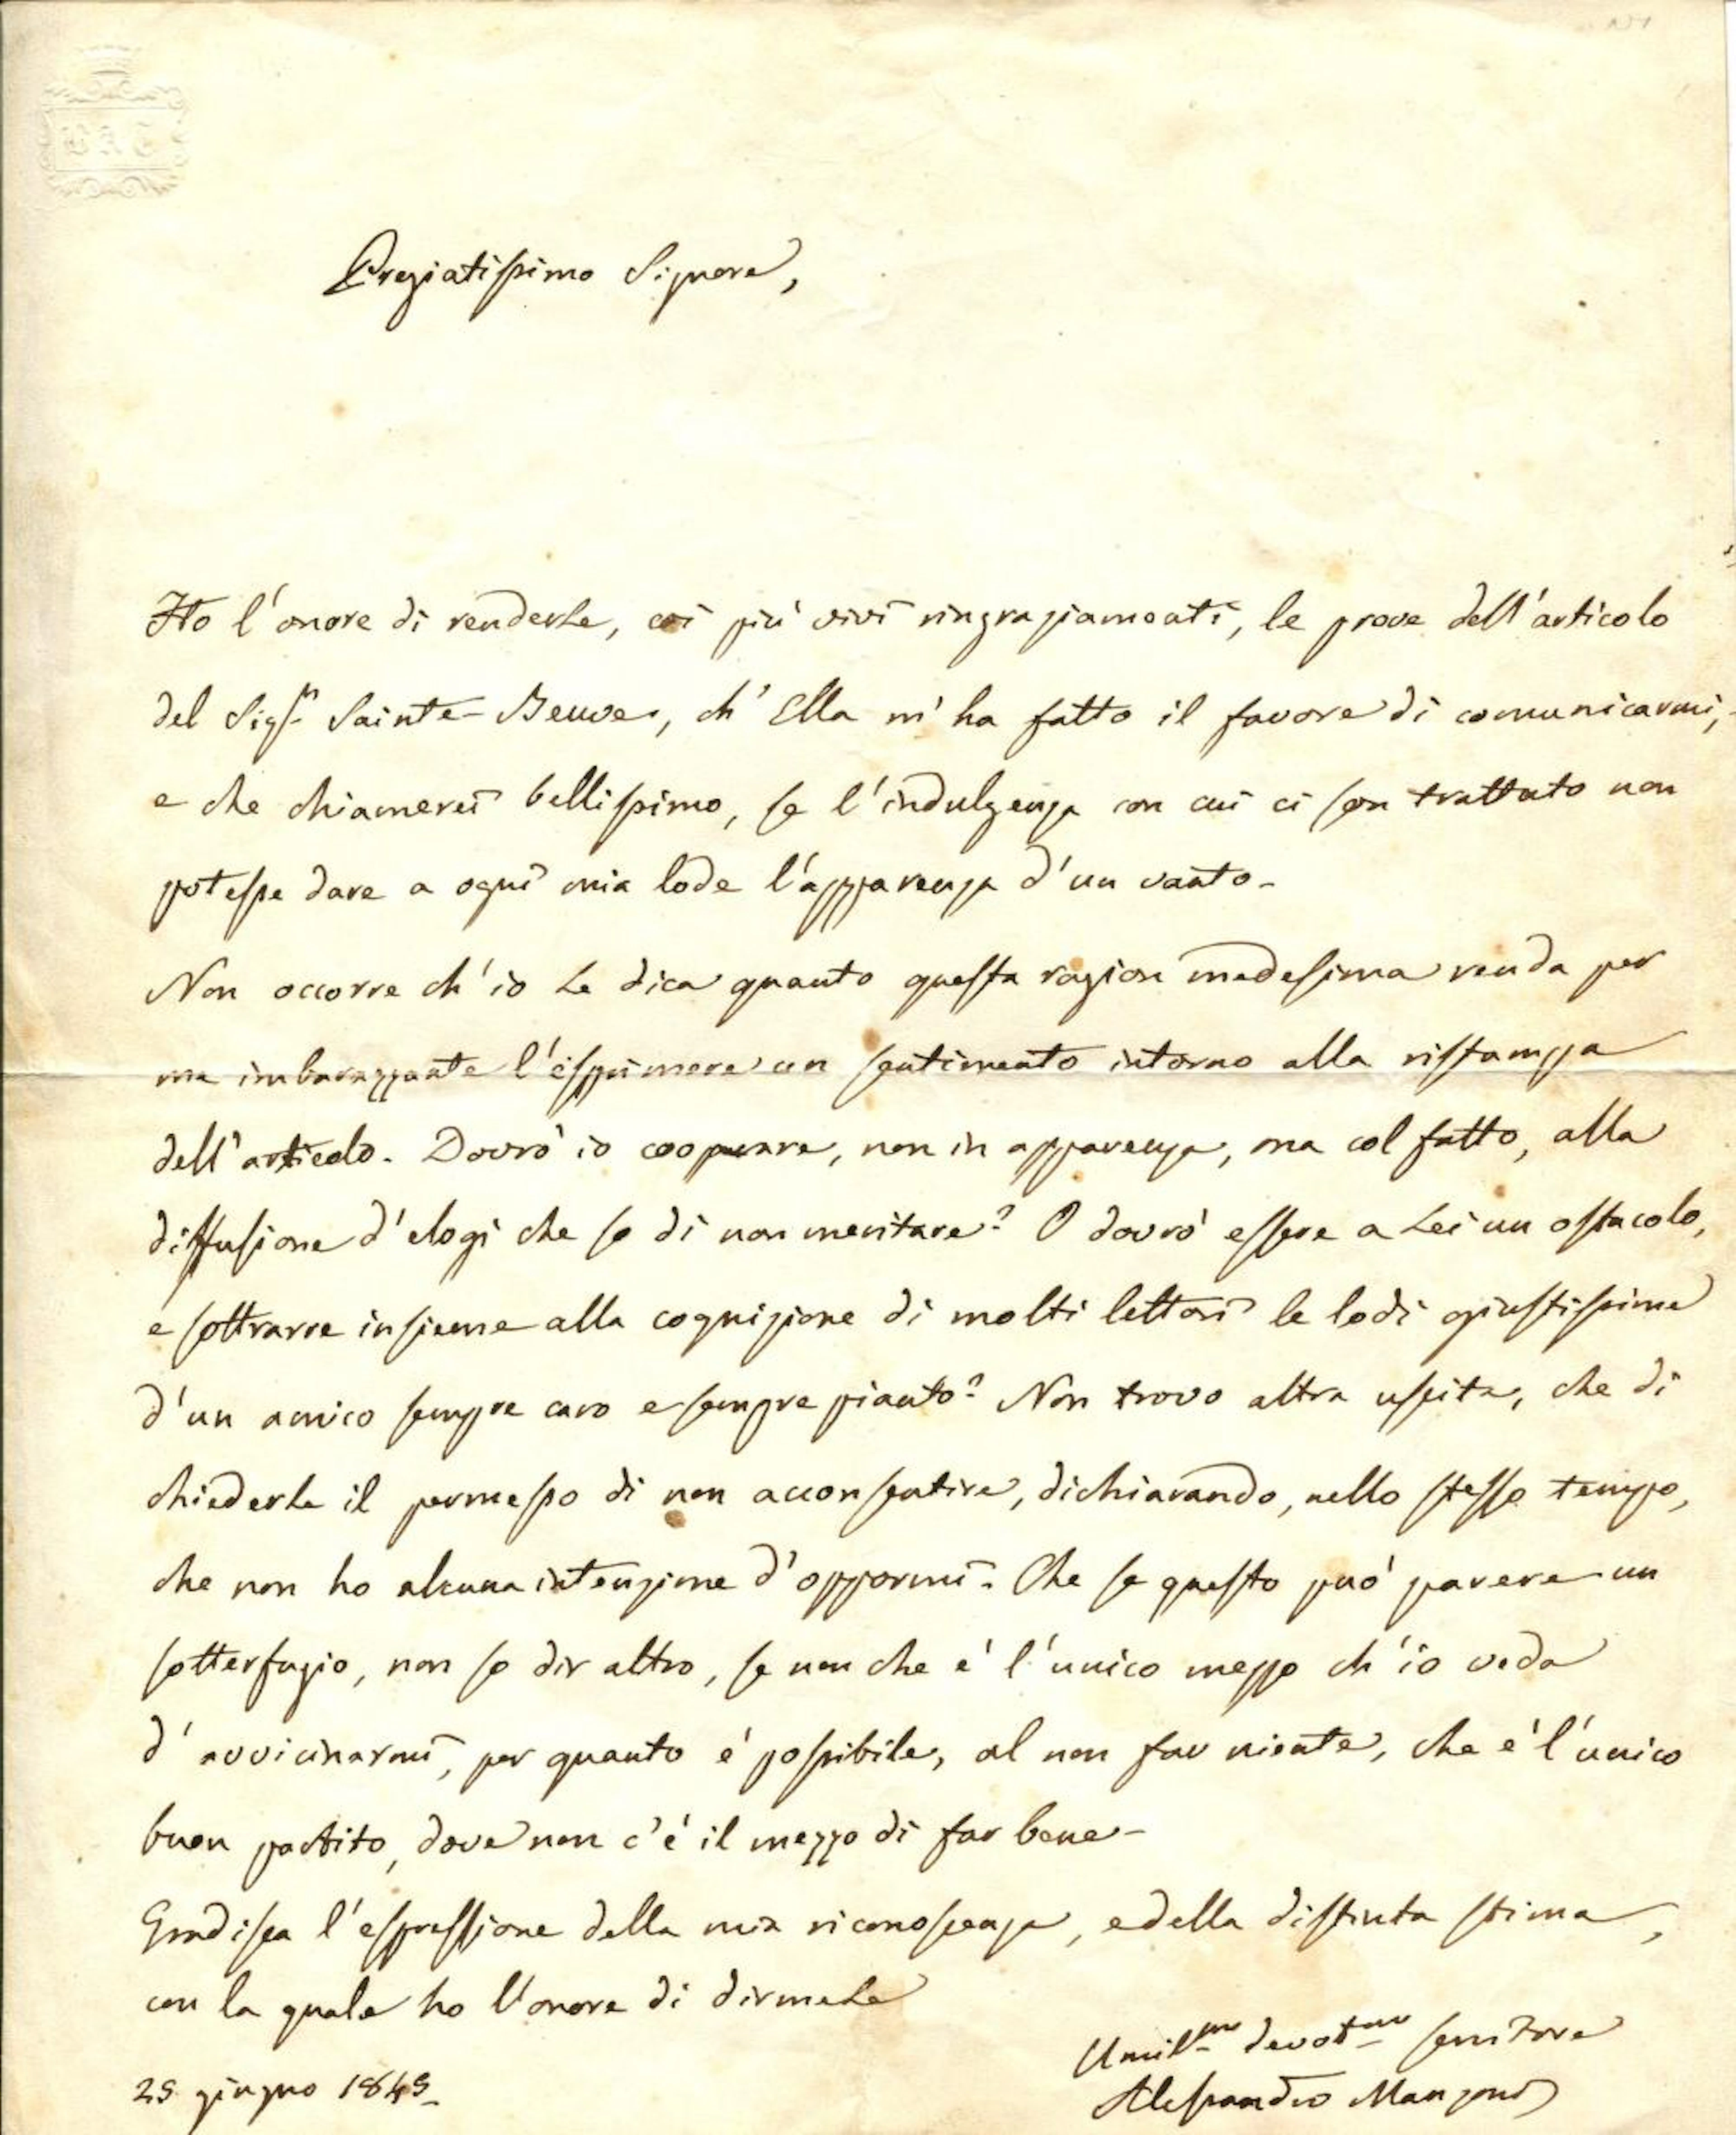 Pregiatissimo Signore,
Ho l'onore di renderLe, coi più vivi ringraziamenti, le prove dell'articolo
del Sigr. Sainte-Beuve, ch'Ella m'ha fatto il favore di comunicarmi,
e che chiamerei bellissimo, se l'indulgenza con cui ci son trattato non
potesse dare a ogni mia lode l'apparenza d'un vanto.
Non occorre ch'io Le dica quanto questa ragion medesima renda per
me imbarazzante l'esprimere un sentimento intorno alla ristampa
dell'articolo. Dovrò io cooperare, non in apparenza, ma col fatto, alla
diffusione d'elogi che so di non meritare? O dovrò essere a Lei un ostacolo,
e sottrarre insieme alla cognizione di molti lettori le lodi giustissime
d'un amico sempre caro e sempre pianto? Non trovo altra uscita, che di
chiederLe il permesso di non acconsentire, dichiarando, nello stesso tempo,
che non ho alcuna intenzione d'oppormi. Che se questo può parere un
sotterfugio, non so dir altro, se non che è l'unico mezzo ch'io veda
d'avvicinarmi, per quanto è possibile, al non far niente, che è l'unico
buon partito, dove non c'è il mezzo di far bene.
Gradisca l'espressione della mia riconoscenza, e della distinta stima,
con la quale ho l'onore di dirmeLe
Umilmo devotmo servitore
25 giugno 1845.
Alessandro Manzoni